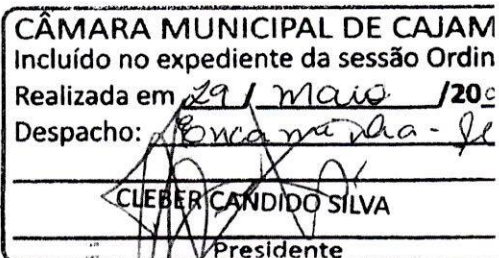 CÂMARA MUNICIPAL DE CAJAM
Incluído no expediente da sessão Ordin
Realizada em 29 / Maio /20
Despacho: Encaminha-se
CLEBER CANDIDO SILVA
Presidente